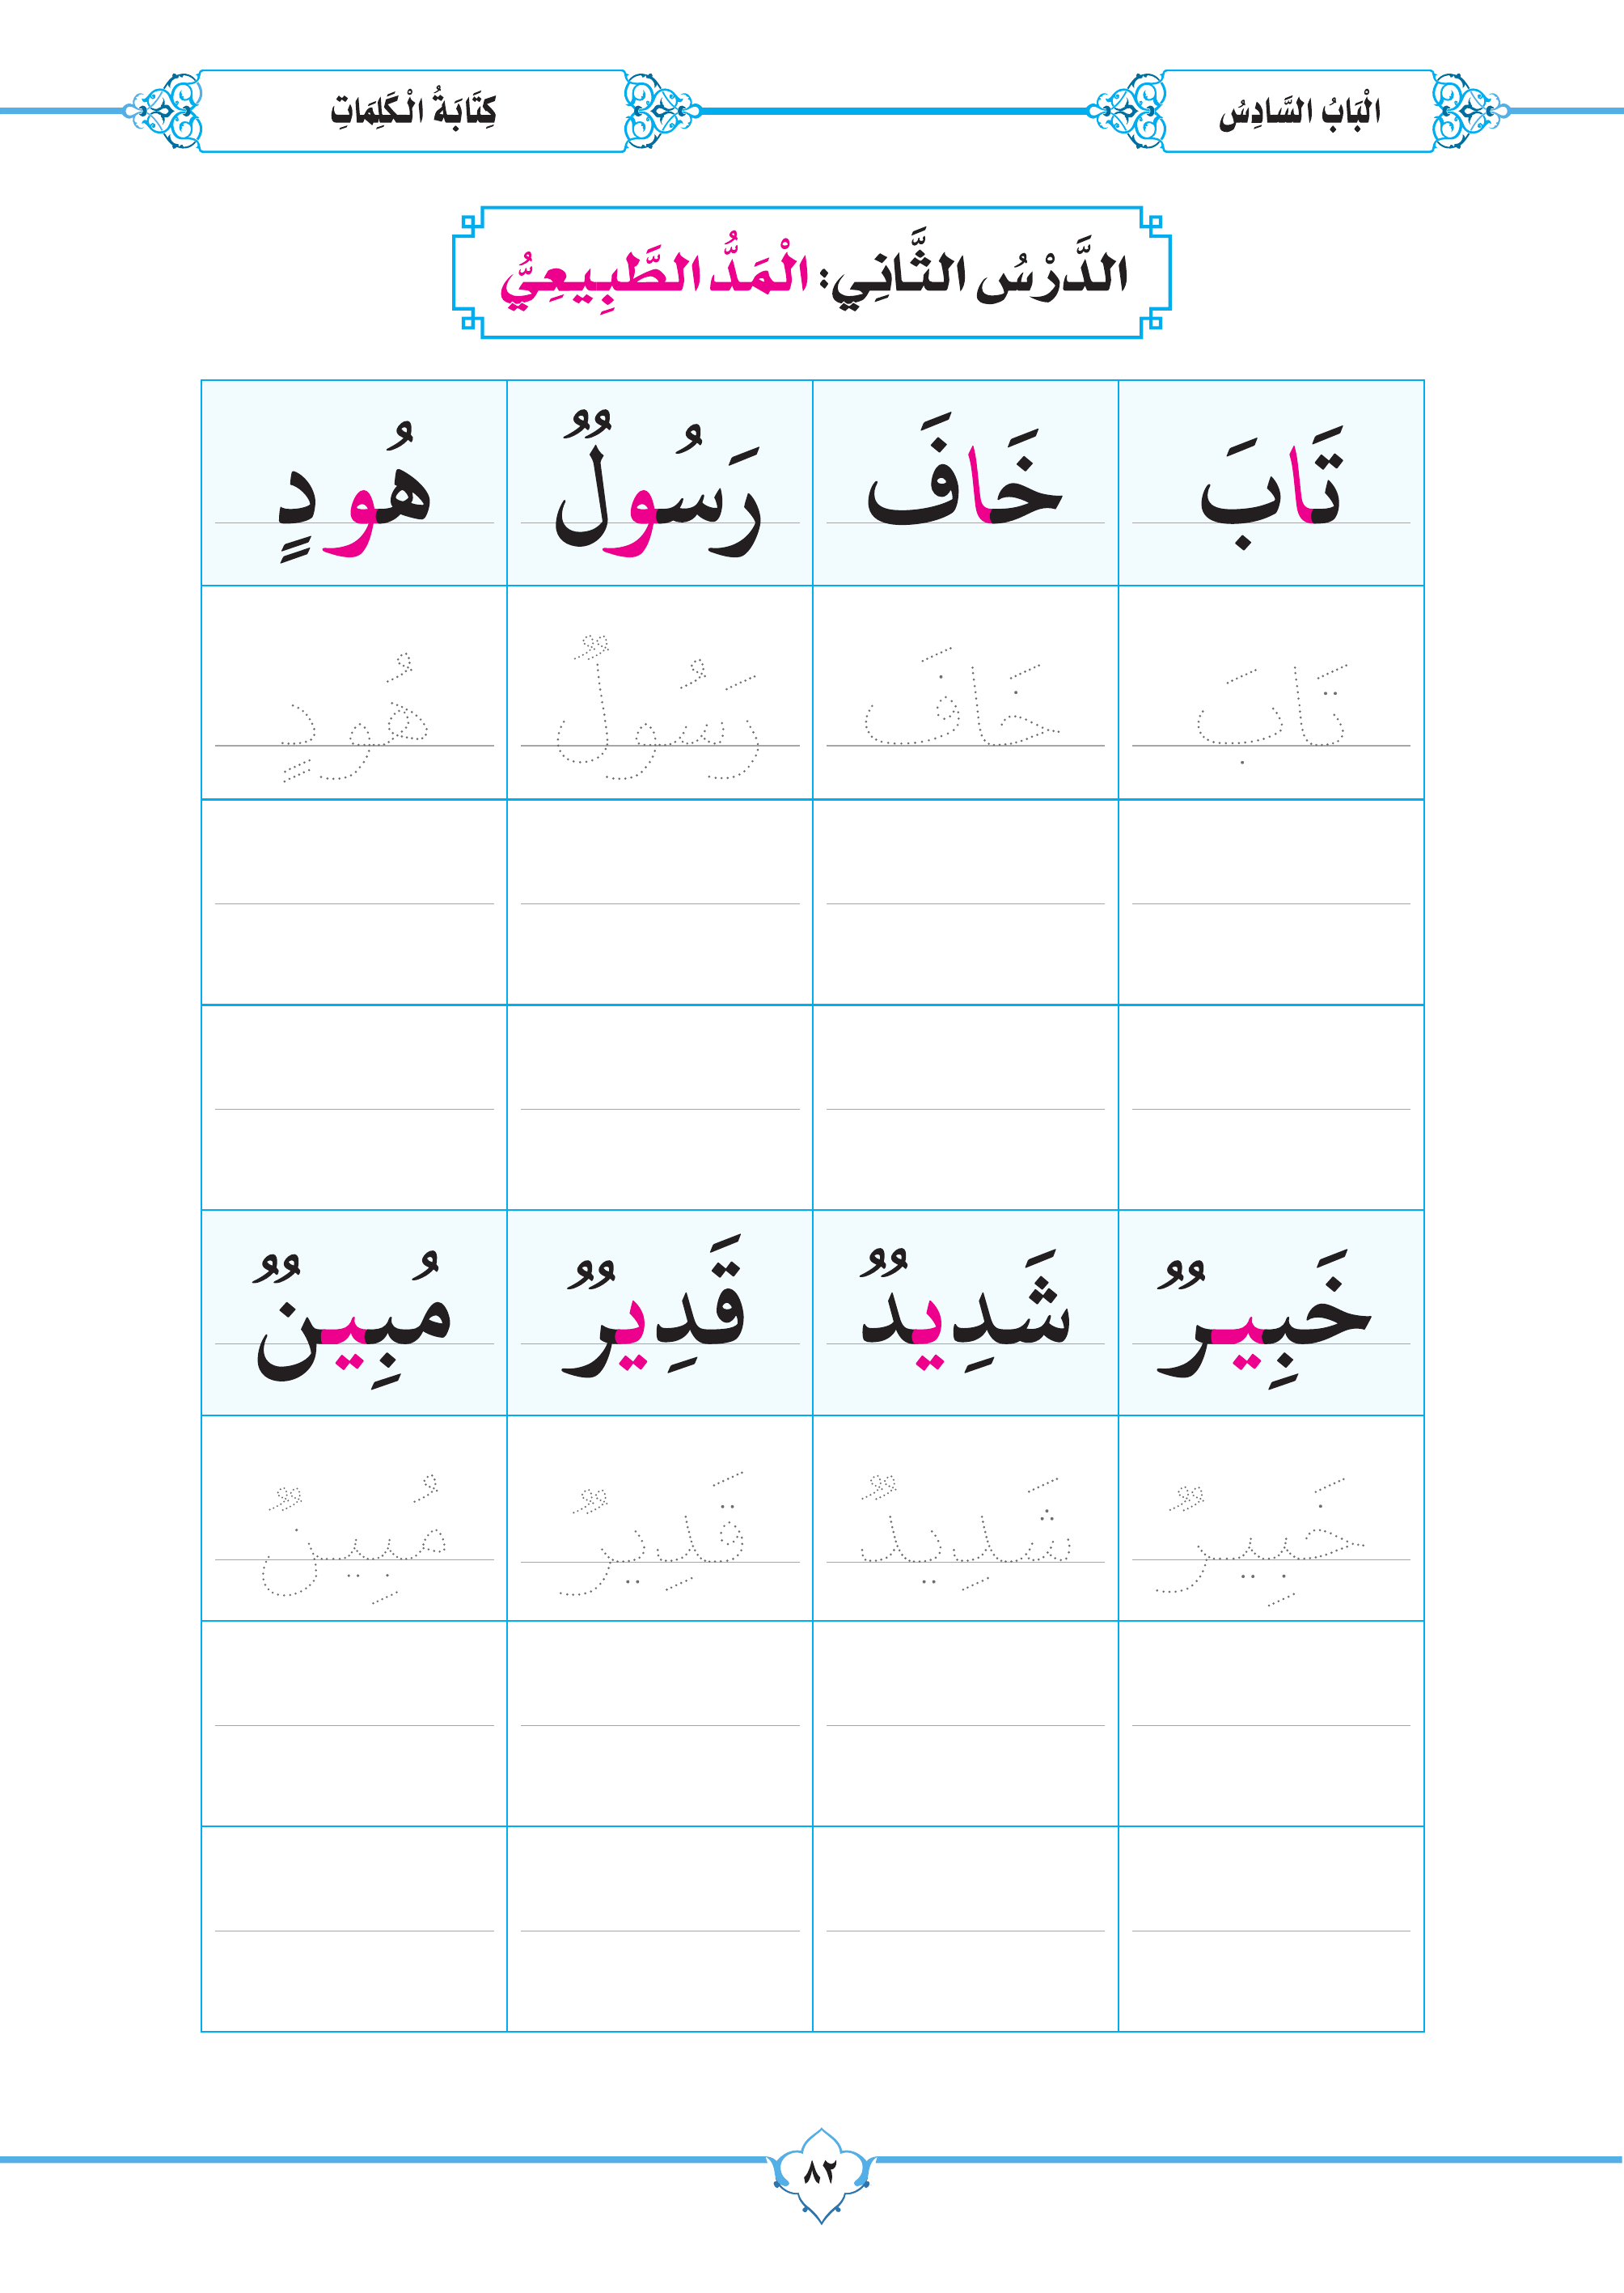 الْبَابُ السَّادِسُ
كِتَابَةُ الْكَلِمَاتِ
الدَّرْسُ الثَّانِي: الْمَدُّ الطَّبِيعِيُّ
تَابَ خَافَ رَسُولٌ هُودٍ
تَابَ خَافَ رَسُولٌ هُودٍ
خَبِيرٌ شَدِيدٌ قَدِيرٌ مُبِينٌ
خَبِيرٌ شَدِيدٌ قَدِيرٌ مُبِينٌ
٨٢